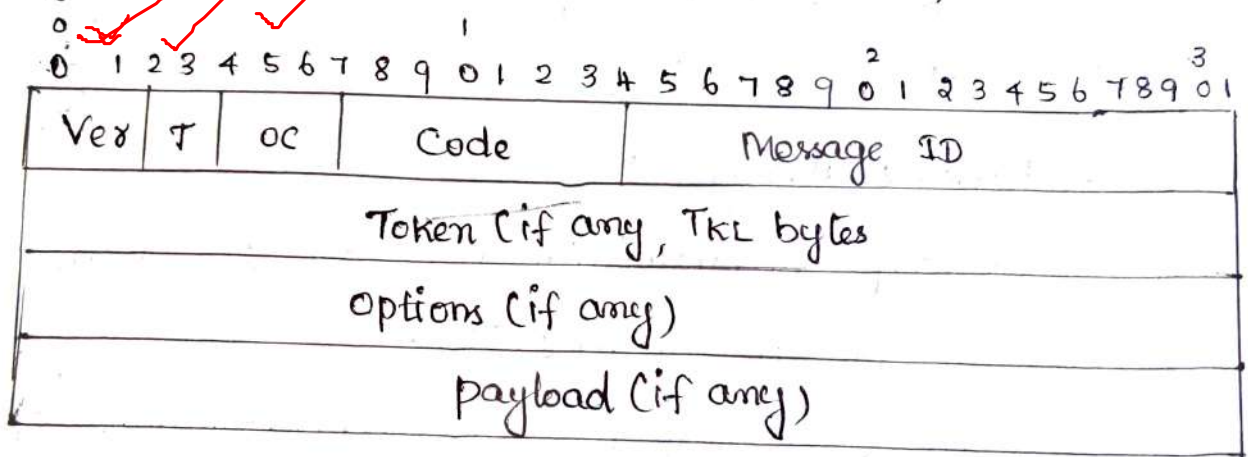 0
0 1
0 1 2 3 4 5 6 7 8 9 0 1 2 3 4 5 6 7 8 9 0 1 2 3 4 5 6 7 8 9 0 1
2 3
Ver T OC Code Message ID
Token (if any, TKL bytes
options (if any)
payload (if any)